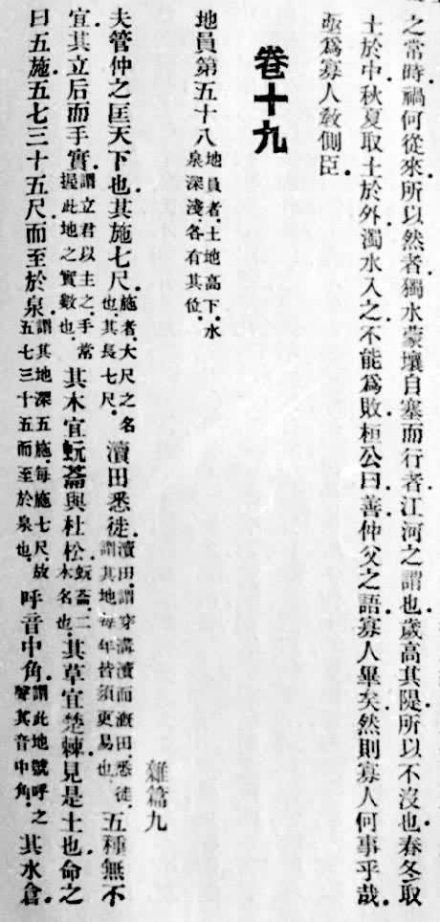 之常時。禍何從來。所以然者。獨水蒙壤。自塞而行者。江河之謂也。歲高其隄。所以不沒也。春冬取
土於中。秋夏取土於外。濁水入之。不能爲敗。桓公曰。善。仲父之語寡人畢矣。然則寡人何事乎哉。
亟爲寡人敎側臣。
卷十九
地員第五十八地員者。土地高下。水泉深淺。各有其位。
雜篇九
夫管仲之匡天下也。其施七尺。施者。大尺之名也。其長七尺。瀆田悉徙。瀆田。謂穿溝瀆而漑田。悉徙。謂其地每年皆須更易也。五種無不
宜。其立后而手實。謂立君以主之。手常握此地之實數也。其木宜蚖菕與杜松。蚖菕。二木名也。其草宜楚棘。見是土也。命之
曰五施。五七三十五尺而至於泉。謂其地深五施。每施七尺。故五七三十五而至於泉也。呼音中角。謂此地號呼之聲。其音中角。其水倉。